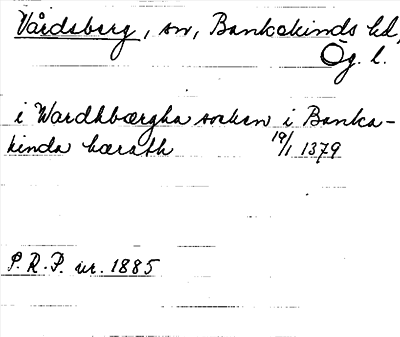 Vårdsberg, sn, Bankekinds hd,
Ög. l.
i Wardhbærgha sochen i Banka-
kinda hærath 19/1 1379
P. R. P. nr. 1885